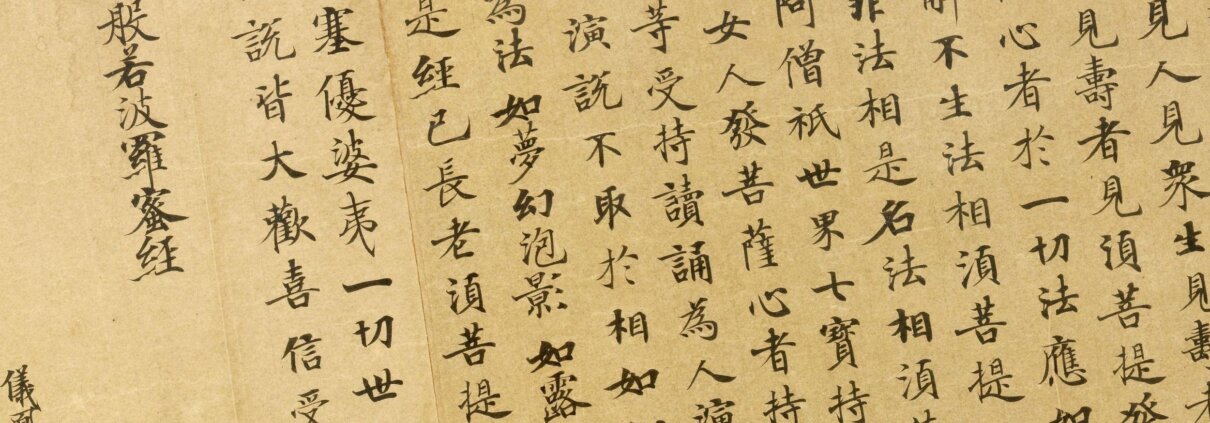 見人見衆生見壽者
見壽者見湏菩提發
心者於一切法應如
解不生法相湏菩提
非法相是名法相湏
阿僧祇世界七寶持
女人發菩薩心者持
等受持讀誦為人演
演說不取於相如
為法如夢幻泡影如露
是經已長老湏菩提
塞優婆夷一切世
說皆大歡喜信受
般若波羅蜜經
儀